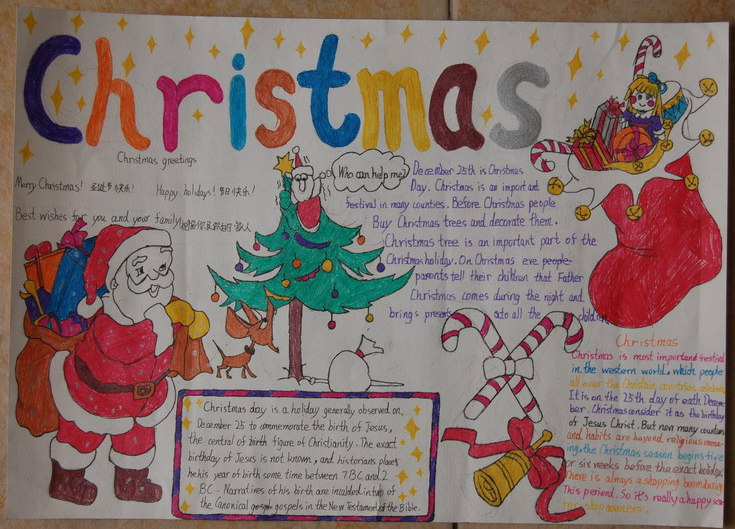 Christmas
Christmas greetings
Merry Christmas! 圣诞节快乐! Happy holidays! 节日快乐!
Best wishes for you and your family
Who can help me?
December 25th is Christmas
Day. Christmas is an important
festival in many countries. Before Christmas people
Buy Christmas trees and decorate them.
Christmas tree is an important part of the
Christmas holiday. On Christmas eve people
parents tell their children that Father
Christmas comes during the night and
brings presents to all the children
Christmas day is a holiday generally observed on
December 25 to commemorate the birth of Jesus,
the central of birth figure of Christianity. The exact
birthday of Jesus is not known, and historians places
his year of birth some time between 7 BC and 2
BC. Narratives of his birth are included in two of
the Canonical gospels in the New Testament of the Bible.
Christmas
Christmas is most important festival
in the western world. which people
all over the Christain countries
It is on the 25th day of eath Decem-
ber. Christmas consider it as the birthday
of Jesus Christ. But now many countries
and habits are beyond religious
the Christmas season begins five
or six weeks before the exact holiday
There is always a stopping boom during
This periend. So it's really a happy